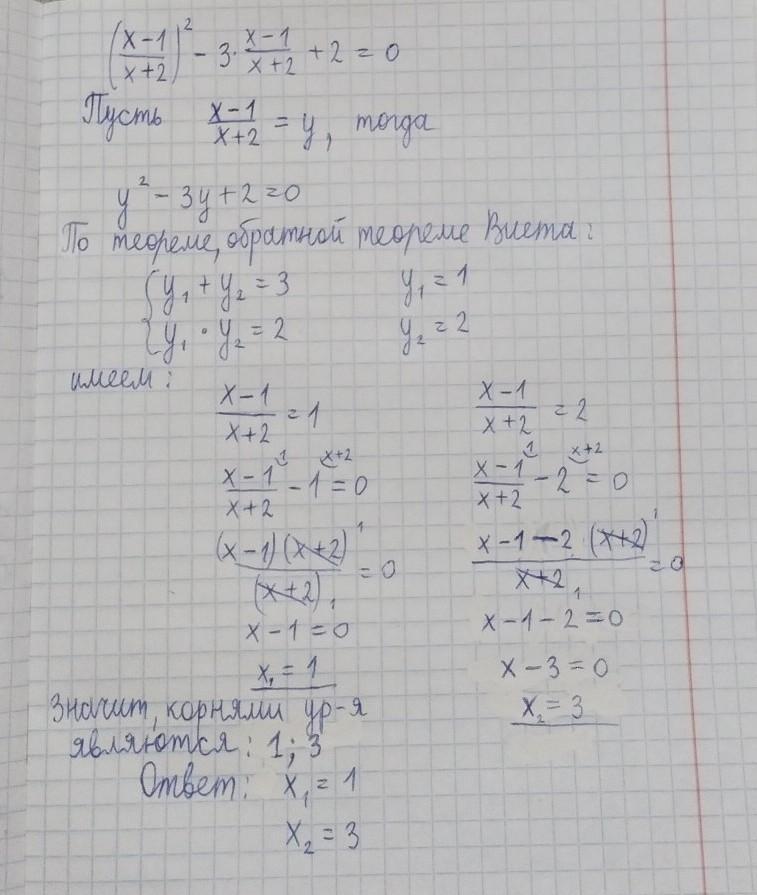 ((x-1)/(x+2))² - 3·(x-1)/(x+2) + 2 = 0
Пусть (x-1)/(x+2) = y, тогда
y² - 3y + 2 = 0
По теореме, обратной теореме Виета:
{ y₁ + y₂ = 3 y₁ = 1
{ y₁ · y₂ = 2 y₂ = 2
имеем:
(x-1)/(x+2) = 1 (x-1)/(x+2) = 2
1 x+2 1 x+2
(x-1)/(x+2) - 1 = 0 (x-1)/(x+2) - 2 = 0
(x-1)(x+2)¹/(x+2)₁ = 0 x-1-2 (x+2)¹/x+2₁ = 0
x-1 = 0 x-1-2 = 0
x₁ = 1 x-3 = 0
Значит, корнями ур-я x₂ = 3
являются: 1; 3
Ответ: x₁ = 1
x₂ = 3